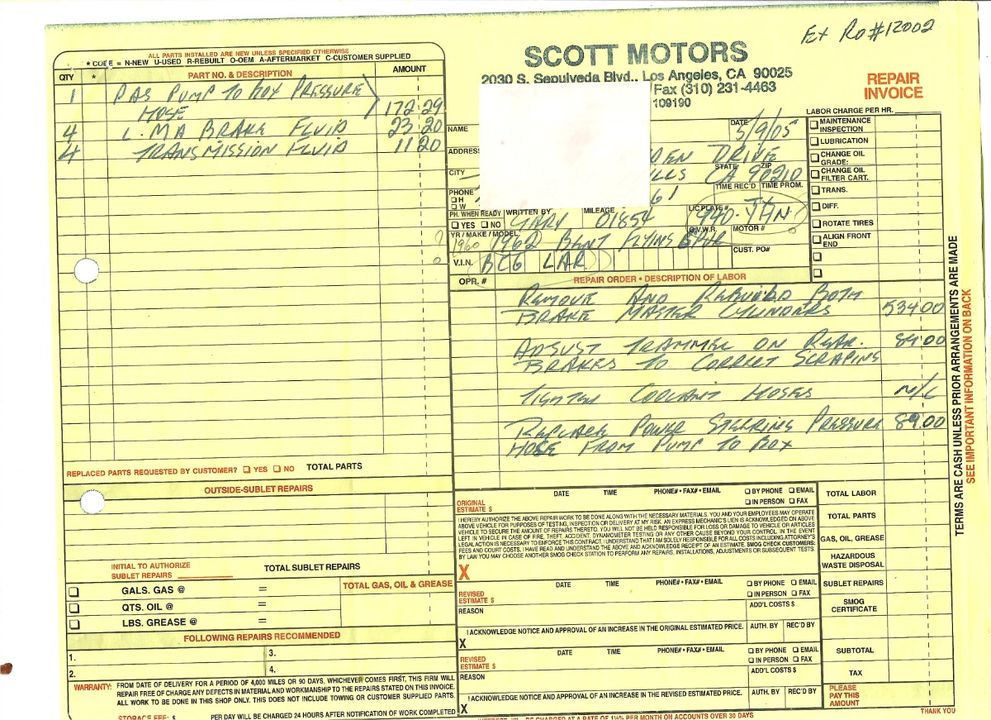 Ex Ro#12002
SCOTT MOTORS
2030 S. Sepulveda Blvd., Los Angeles, CA 90025
Fax (310) 231-4463
109190
REPAIR
INVOICE
ALL PARTS INSTALLED ARE NEW UNLESS SPECIFIED OTHERWISE
* CODE = N-NEW U-USED R-REBUILT O-OEM A-AFTERMARKET C-CUSTOMER SUPPLIED
QTY * PART NO. & DESCRIPTION AMOUNT
1 PAS PUMP TO BOX PRESSURE
HOSE 172.29
4 L.M A BRAKE FLUID 23 20
4 TRANSMISSION FLUID 11 20
REPLACED PARTS REQUESTED BY CUSTOMER? YES NO TOTAL PARTS
OUTSIDE-SUBLET REPAIRS
INITIAL TO AUTHORIZE
SUBLET REPAIRS TOTAL SUBLET REPAIRS
GALS. GAS @ =
QTS. OIL @ =
LBS. GREASE @ =
TOTAL GAS, OIL & GREASE
FOLLOWING REPAIRS RECOMMENDED
1. 3.
2. 4.
WARRANTY: FROM DATE OF DELIVERY FOR A PERIOD OF 4,000 MILES OR 90 DAYS, WHICHEVER COMES FIRST, THIS FIRM WILL
REPAIR FREE OF CHARGE ANY DEFECTS IN MATERIAL AND WORKMANSHIP TO THE REPAIRS STATED ON THIS INVOICE.
ALL WORK TO BE DONE IN THIS SHOP ONLY. THIS DOES NOT INCLUDE TOWING OR CUSTOMER SUPPLIED PARTS.
STORAGE FEE: $ PER DAY WILL BE CHARGED 24 HOURS AFTER NOTIFICATION OF WORK COMPLETED
LABOR CHARGE PER HR.
MAINTENANCE
INSPECTION
LUBRICATION
CHANGE OIL
GRADE:
CHANGE OIL
FILTER CART.
TRANS.
DIFF.
ROTATE TIRES
ALIGN FRONT
END
NAME DATE 5/9/05
ADDRESS DEN DRIVE
CITY LLS STATE CA ZIP 90210
PHONE H W 61 TIME REC'D TIME PROM.
PH. WHEN READY YES NO WRITTEN BY GARY MILEAGE 01854 LIC. PLATE # 940-JHN
YR / MAKE / MODEL 1960 1962 BENT FLYING SPUR G.V.W.R. MOTOR #
V.I.N. BC6 LAR CUST. PO#
OPR. # REPAIR ORDER • DESCRIPTION OF LABOR
REMOVE AND REBUILD BOTH
BRAKE MASTER CYLINDERS 534 00
ADJUST TRAMMEL ON REAR. 89.00
BRAKES TO CORRECT SCRAPING
TIGHTEN COOLANT HOSES N/C
REPLACE POWER STEERING PRESSURE 89.00
HOSE FROM PUMP TO BOX
DATE TIME PHONE# • FAX# • EMAIL BY PHONE EMAIL
IN PERSON FAX
ORIGINAL
ESTIMATE $
I HEREBY AUTHORIZE THE ABOVE REPAIR WORK TO BE DONE ALONG WITH THE NECESSARY MATERIALS. YOU AND YOUR EMPLOYEES MAY OPERATE
ABOVE VEHICLE FOR PURPOSES OF TESTING, INSPECTION OR DELIVERY AT MY RISK. AN EXPRESS MECHANIC'S LIEN IS ACKNOWLEDGED ON ABOVE
VEHICLE TO SECURE THE AMOUNT OF REPAIRS THERETO. YOU WILL NOT BE HELD RESPONSIBLE FOR LOSS OR DAMAGE TO VEHICLE OR ARTICLES
LEFT IN VEHICLE IN CASE OF FIRE, THEFT, ACCIDENT, DYNAMOMETER TESTING OR ANY OTHER CAUSE BEYOND YOUR CONTROL. IN THE EVENT
LEGAL ACTION IS NECESSARY TO ENFORCE THIS CONTRACT, I UNDERSTAND THAT I'M SOLELY RESPONSIBLE FOR ALL COSTS INCLUDING ATTORNEY'S
FEES AND COURT COSTS. I HAVE READ AND UNDERSTAND THE ABOVE AND ACKNOWLEDGE RECEIPT OF AN ESTIMATE. SMOG CHECK CUSTOMERS:
BY LAW YOU MAY CHOOSE ANOTHER SMOG CHECK STATION TO PERFORM ANY REPAIRS, INSTALLATIONS, ADJUSTMENTS OR SUBSEQUENT TESTS.
X
DATE TIME PHONE# • FAX# • EMAIL BY PHONE EMAIL
IN PERSON FAX
REVISED
ESTIMATE $
REASON ADD'L COSTS $
I ACKNOWLEDGE NOTICE AND APPROVAL OF AN INCREASE IN THE ORIGINAL ESTIMATED PRICE. AUTH. BY REC'D BY
X
DATE TIME PHONE# • FAX# • EMAIL BY PHONE EMAIL
IN PERSON FAX
REVISED
ESTIMATE $
REASON ADD'L COSTS $
I ACKNOWLEDGE NOTICE AND APPROVAL OF AN INCREASE IN THE REVISED ESTIMATED PRICE. AUTH. BY REC'D BY
X
TOTAL LABOR
TOTAL PARTS
GAS, OIL, GREASE
HAZARDOUS
WASTE DISPOSAL
SUBLET REPAIRS
SMOG
CERTIFICATE
SUBTOTAL
TAX
PLEASE
PAY THIS
AMOUNT
THANK YOU
CHARGED AT A RATE OF 1½% PER MONTH ON ACCOUNTS OVER 30 DAYS
TERMS ARE CASH UNLESS PRIOR ARRANGEMENTS ARE MADE
SEE IMPORTANT INFORMATION ON BACK